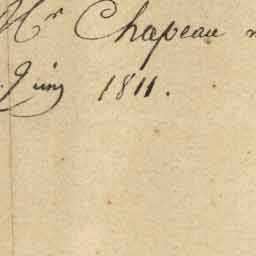 Mr Chapeau
Juin 1811.